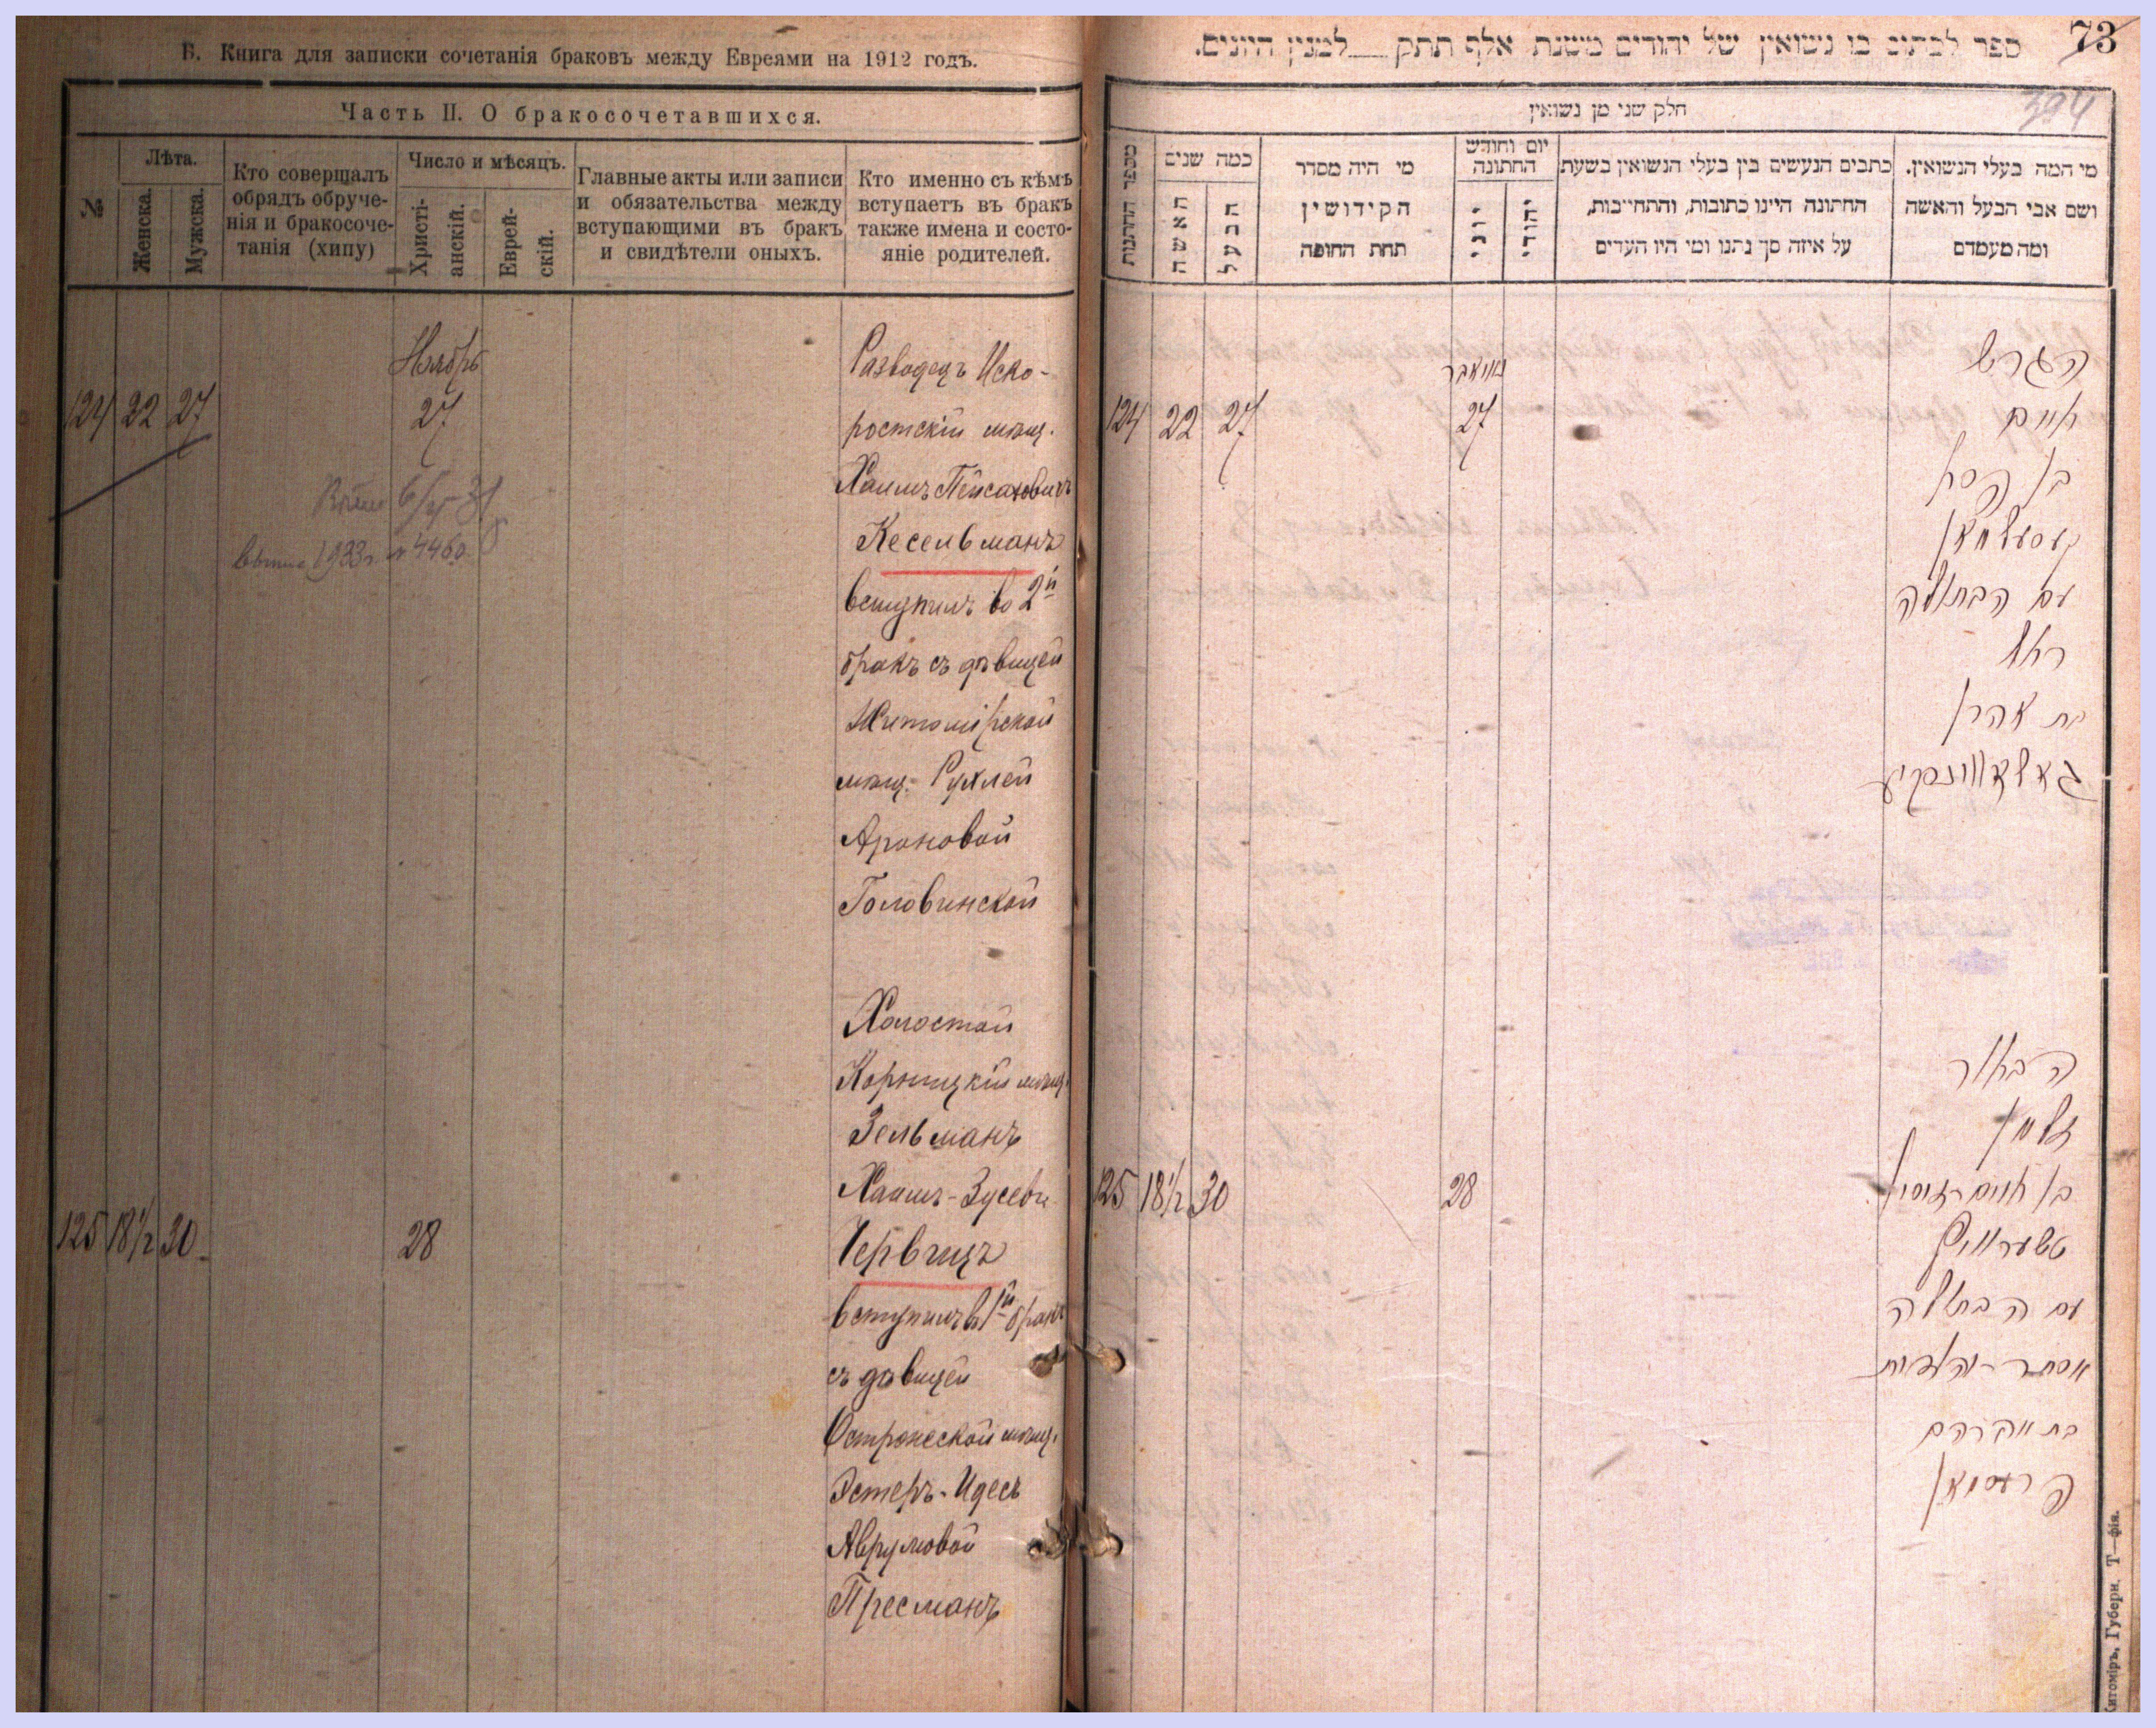 Б. Книга для записки сочетанія браковъ между Евреями на 1912 годъ.
Часть II. О бракосочетавшихся.
№
Лѣта.
Женска.
Мужска.
Кто совершалъ
обрядъ обруче-
нія и бракосоче-
танія (хипу)
Число и мѣсяцъ.
Христі-
анскій.
Еврей-
скій.
Главные акты или записи
и обязательства между
вступающими въ бракъ
и свидѣтели оныхъ.
Кто именно съ кѣмъ
вступаетъ въ бракъ
также имена и состо-
яніе родителей.
Ноябрь
124 22 27 27
1933 г. № 4460
Разводецъ Иско-
ростскій мѣщ.
Хаимъ Пейсаховичъ
Кесельманъ
вступилъ во 2й
бракъ съ дѣвицей
Житомірской
мѣщ. Рухлей
Ароновой
Головинской
125 18½ 30 28
Холостой
Корницкій мѣщ.
Зельманъ
Хаимъ-Зусевъ
Червицъ
вступилъ въ 1й бракъ
съ дѣвицей
Острожской мѣщ.
Эстеръ-Идесъ
Аврумовой
Пресманъ
73
ספר לכתוב בו נשואין של יהודים משנת אלף תתק למנין היונים.
394
חלק שני מן נשואין
מספר החתנות
כמה שנים
האשה
הבעל
מי היה מסדר
הקידושין
תחת החופה
יום וחודש
החתונה
יוני
יהודי
כתבים הנעשים בין בעלי הנשואין בשעת
החתונה היינו כתובות, והתחייבות,
על איזה סך נתנו ומי היו העדים
מי המה בעלי הנשואין.
ושם אבי הבעל והאשה
ומה מעמדם
נאוועמבר
124 22 27 27
הגרוש
חיים
בן פסח
קעסעלמאן
עם הבתולה
רחל
בת אהרן
גאלאווינסקיע
125 18½ 30 28
הבחור
זלמן
בן חיים זוסיא
טשערוויץ
עם הבתולה
אסתר-יהודית
בת אברהם
פרעסמאן
Житоміръ, Губерн. Т—фія.